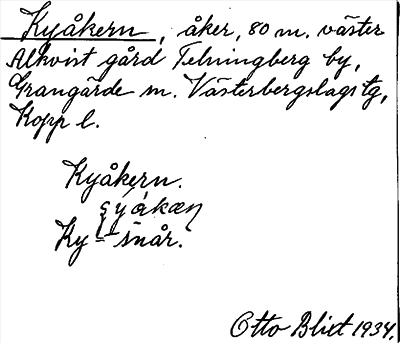 Kyåkern, åker, 80 m. väster
Alkvist gård Telningberg by,
Grangärde sn. Västerbergslags tg,
Kopp l.
Kyåkern.
Ky = snår.
Otto Blixt 1934.